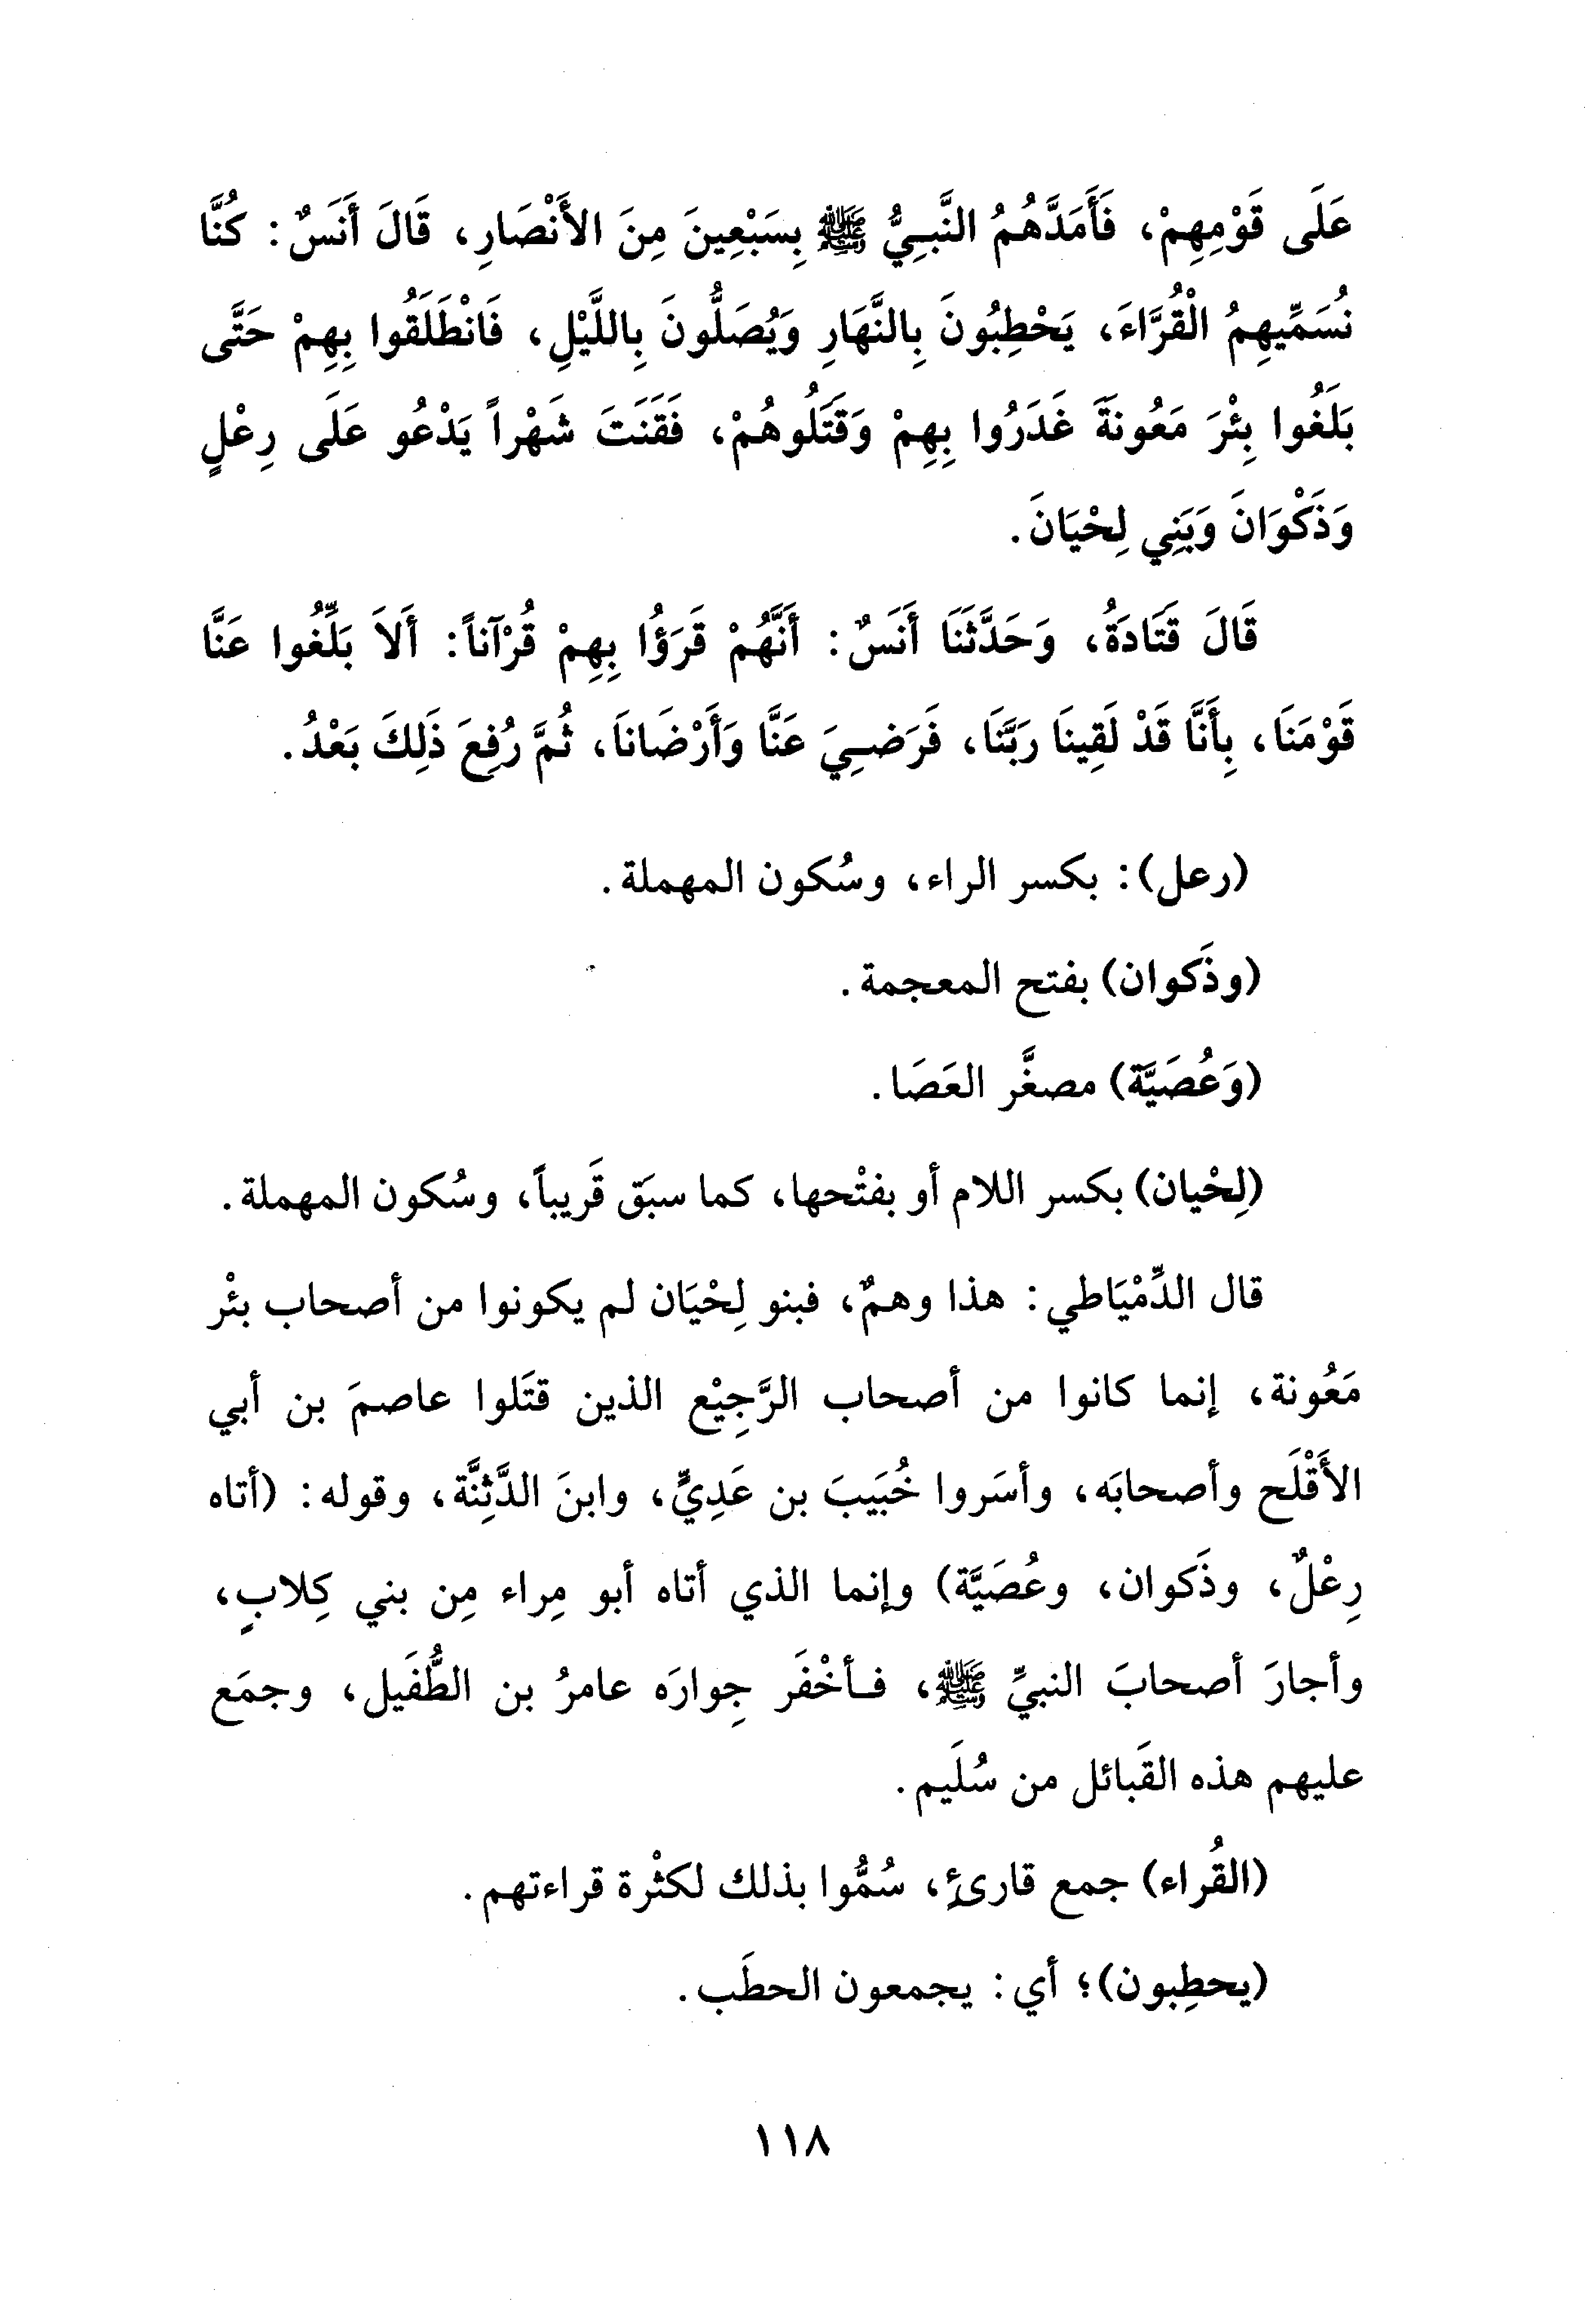 عَلَى قَوْمِهِمْ، فَأَمَدَّهُمُ النَّبِيُّ ﷺ بِسَبْعِينَ مِنَ الأَنْصَارِ، قَالَ أَنَسٌ: كُنَّا
نُسَمِّيهِمُ الْقُرَّاءَ، يَحْطِبُونَ بِالنَّهَارِ وَيُصَلُّونَ بِاللَّيْلِ، فَانْطَلَقُوا بِهِمْ حَتَّى
بَلَغُوا بِئْرَ مَعُونَةَ غَدَرُوا بِهِمْ وَقَتَلُوهُمْ، فَقَنَتَ شَهْراً يَدْعُو عَلَى رِعْلٍ
وَذَكْوَانَ وَبَنِي لِحْيَانَ.
قَالَ قَتَادَةُ، وَحَدَّثَنَا أَنَسٌ: أَنَّهُمْ قَرَؤُا بِهِمْ قُرْآناً: أَلاَ بَلِّغُوا عَنَّا
قَوْمَنَا، بِأَنَّا قَدْ لَقِينَا رَبَّنَا، فَرَضِيَ عَنَّا وَأَرْضَانَا، ثُمَّ رُفِعَ ذَلِكَ بَعْدُ.
(رعل): بكسر الراء، وسُكون المهملة.
(وذَكوان) بفتح المعجمة.
(وَعُصَيَّة) مصغَّر العَصَا.
(لِحْيان) بكسر اللام أو بفتْحها، كما سبَق قَريباً، وسُكون المهملة.
قال الدِّمْيَاطي: هذا وهمٌ، فبنو لِحْيَان لم يكونوا من أصحاب بئْر
مَعُونة، إنما كانوا من أصحاب الرَّجِيْع الذين قتَلوا عاصمَ بن أبي
الأَقْلَح وأصحابَه، وأسَروا خُبَيبَ بن عَدِيٍّ، وابنَ الدَّثِنَّة، وقوله: (أتاه
رِعْلٌ، وذَكوان، وعُصَيَّة) وإنما الذي أتاه أبو مِراء مِن بني كِلابٍ،
وأجارَ أصحابَ النبيِّ ﷺ، فأخْفَر جِوارَه عامرُ بن الطُّفَيل، وجمَع
عليهم هذه القَبائل من سُلَيم.
(القُراء) جمع قارئٍ، سُمُّوا بذلك لكثْرة قراءتهم.
(يحطِبون)؛ أي: يجمعون الحطَب.
١١٨